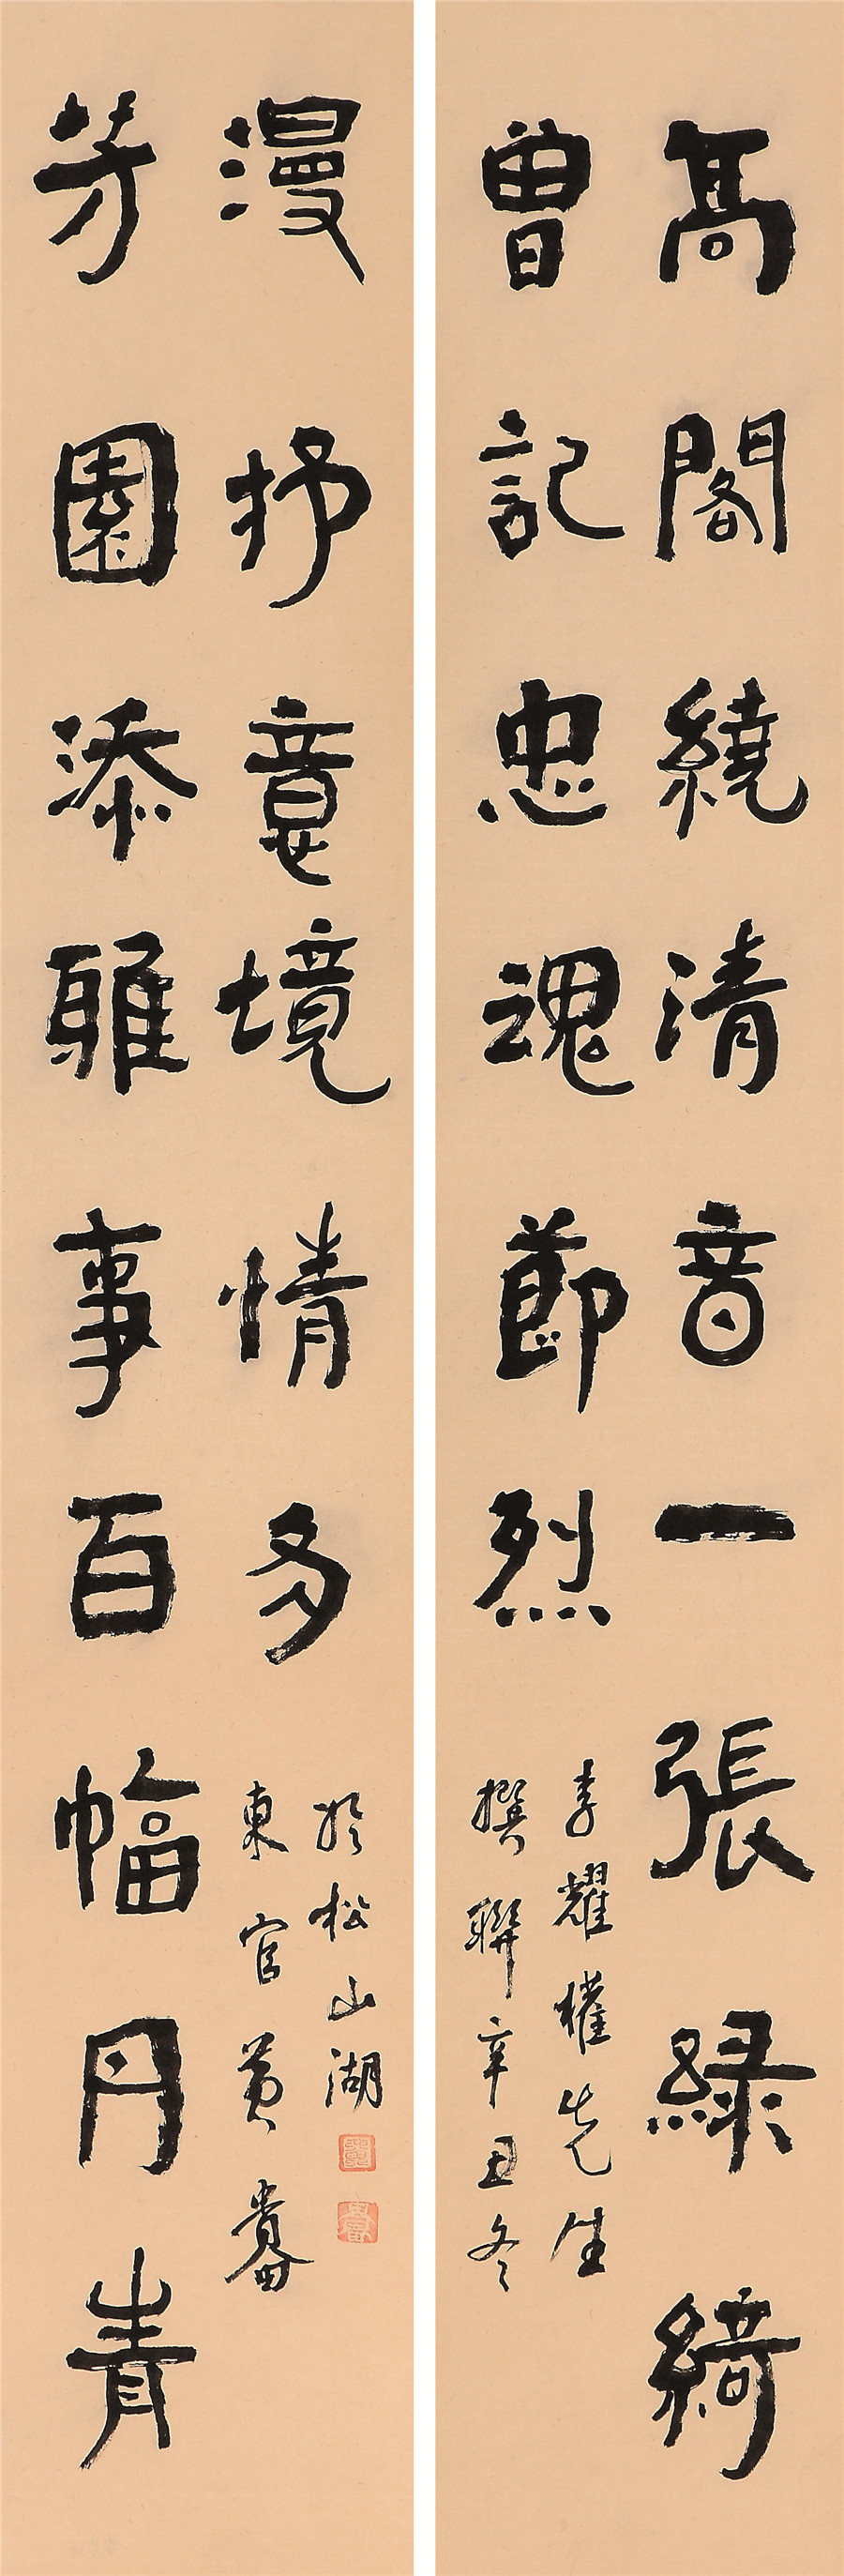 高閣繞清音一張綠綺
曾記忠魂節烈
李耀權先生
撰聯辛丑冬
芳園添雅事百幅丹青
漫抒意境情多
東官黃
於松山湖